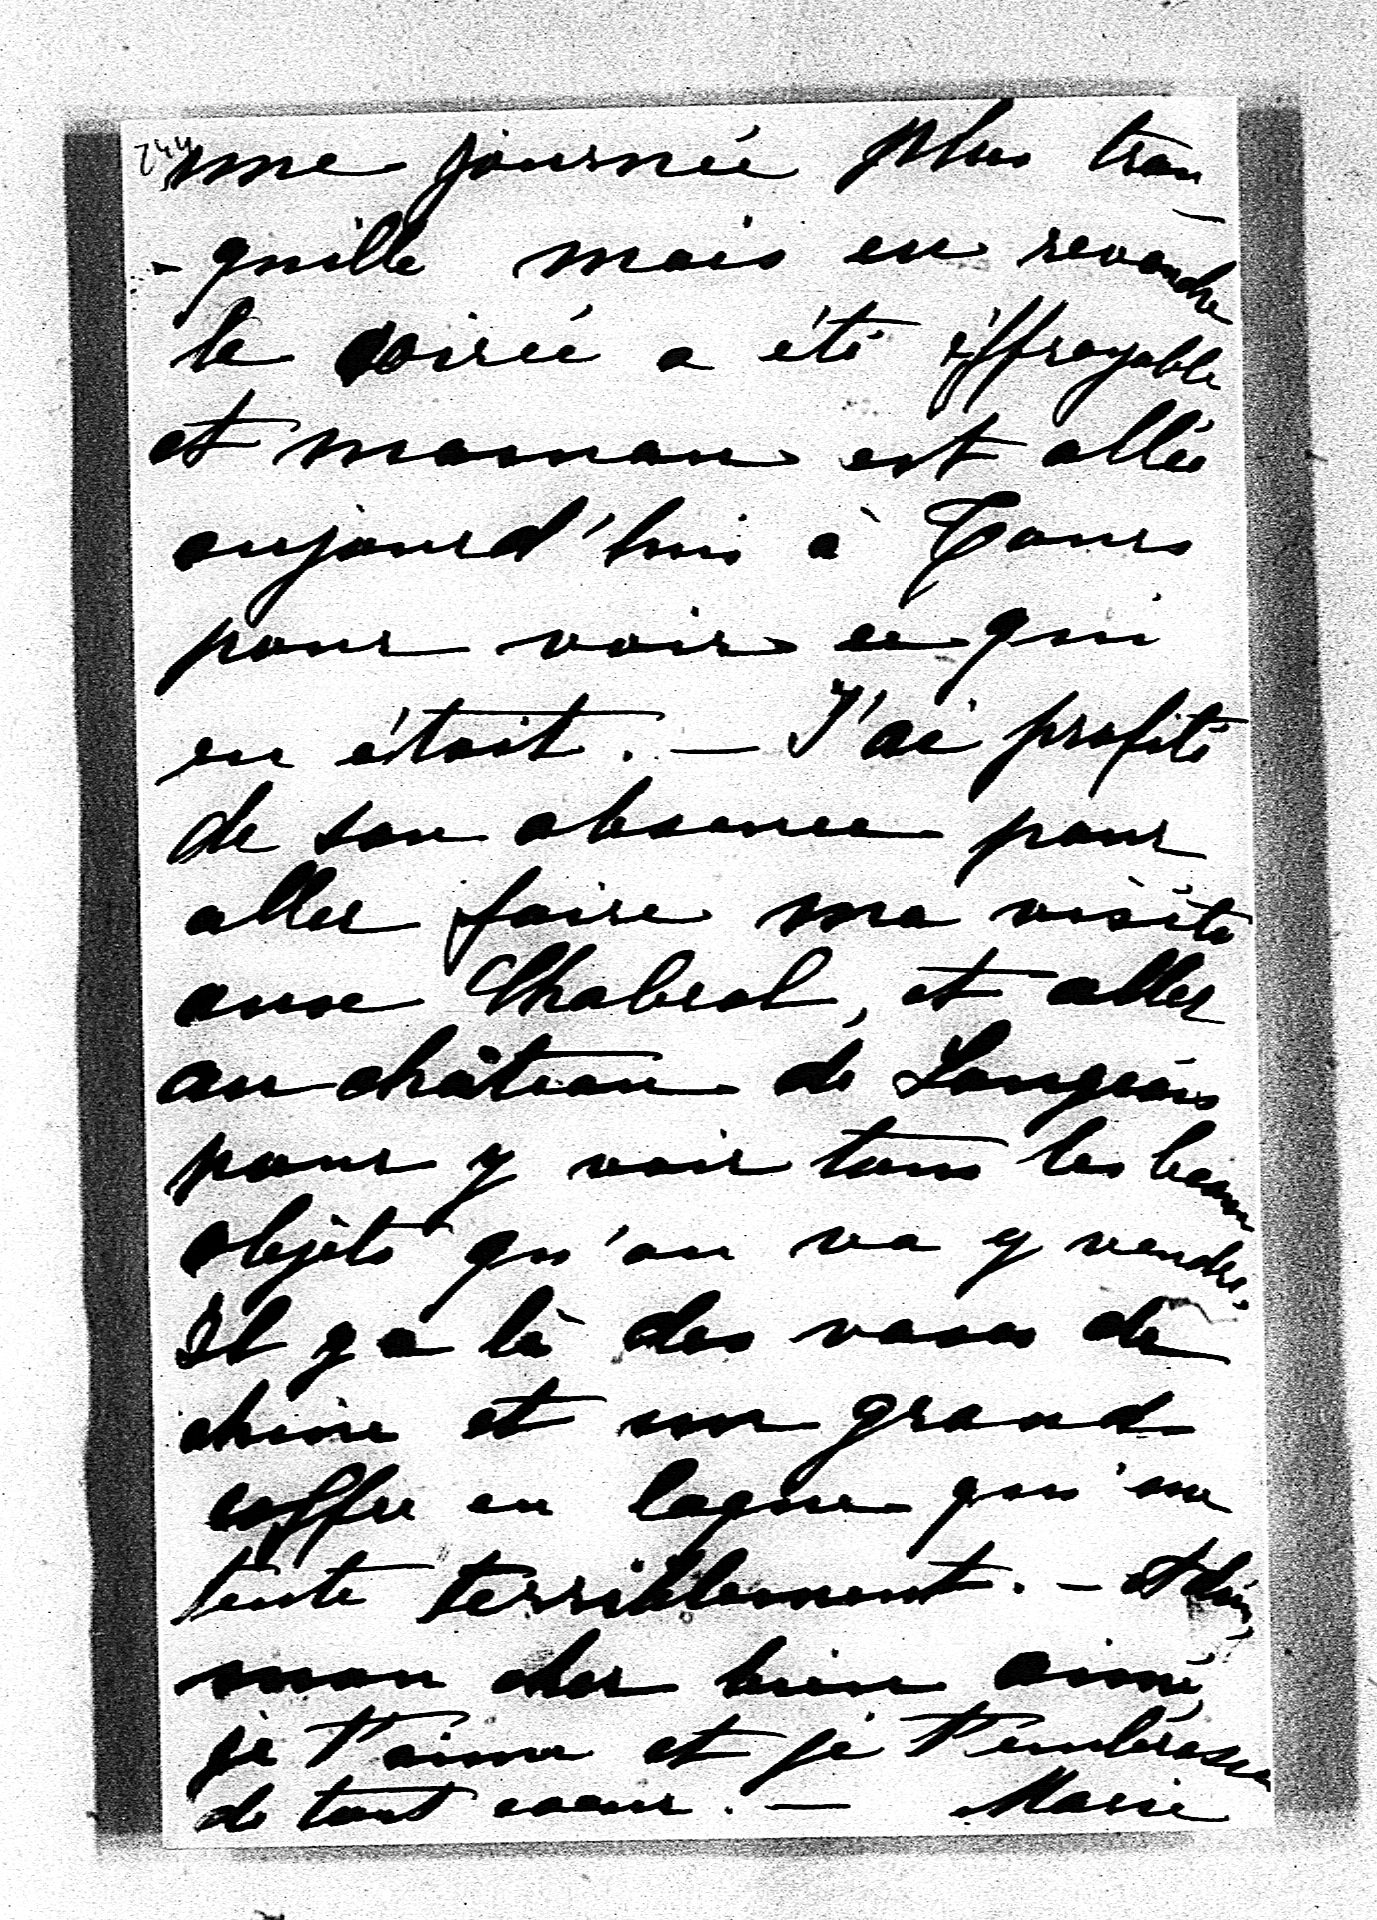 244
une journée plus tran
-quille mais en revanche
la soirée a été éffroyable
et maman est allée
aujourd'hui à Tours
pour voir ce qui
en était. — J'ai profité
de son absence pour
aller faire ma visite
aux Chabrol, et aller
au château de Langeais
pour y voir tous les beaux
objets qu'on va y vendre.
Il y a là des vases de
chine et un grand
coffre en laque qui me
tente terriblement. — Adieu,
mon cher bien aimé,
je t'aime et je t'embrasse
de tout coeur. — Marie